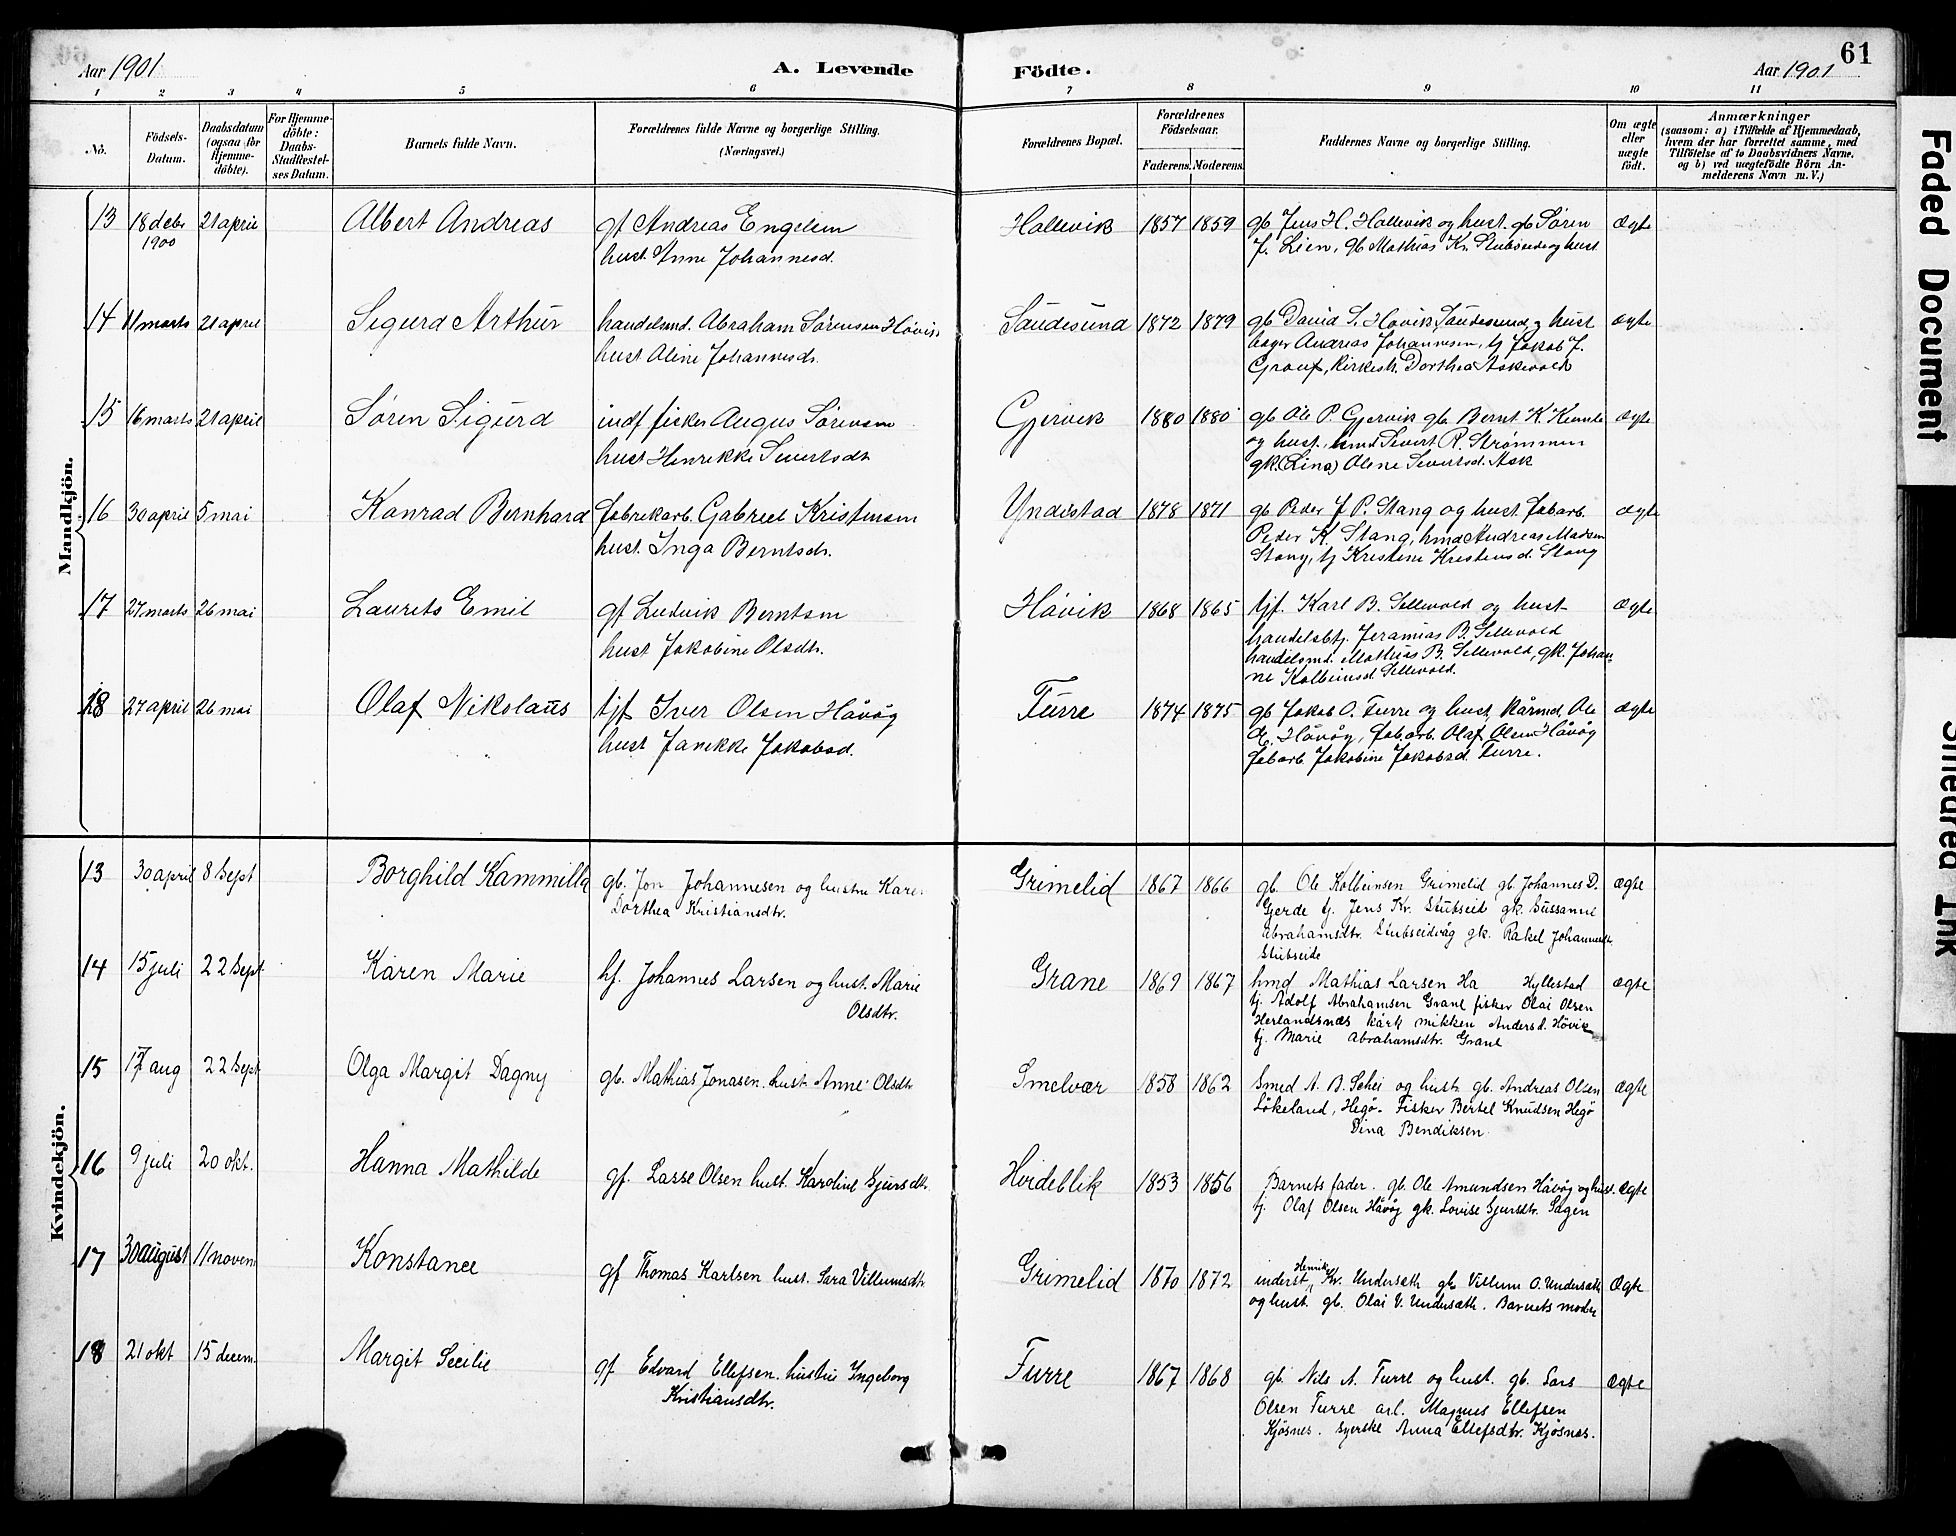 61
Aar 1901
A. Levende
Födte.
Aar 1901
1 2 3 4 5 6 7 8 9 10 11
No.
Födsels-
Datum.
Daabsdatum
(ogsaa for
Hjemme-
döbte).
For Hjemme-
döbte:
Daabs-
Stadfæstel-
ses Datum.
Barnets fulde Navn.
Forældrenes fulde Navne og borgerlige Stilling.
(Næringsvei.)
Forældrenes Bopæl.
Forældrenes
Födselsaar.
Faderens. Moderens.
Faddernes Navne og borgerlige Stilling.
Om ægte
eller
uægte
født.
Anmærkninger
(saasom: a) i Tilfælde af Hjemmedaab,
hvem der har forrettet samme, med
Tilföielse af to Daabsvidners Navne,
og b) ved uegtefödte Börn An-
melderens Navn m. V.)
Mandkjön.
13 18 debr 1900 21 april Albert Andreas gf Andreas Engelsen
hust. Anne Johannesd.
Hallevik 1857 1859 gb Jens H. Hallevik og hust. gb Sören
J. Lien, gb Mathias Kr. Stubseide og hust
Ægte
14 11 marts 21 april Sigurd Arthur handelsmd. Abraham Sørensen Hövik
hust Aline Johannesdr.
Saudesund 1872 1879 gb David S. Hövik, Saudesund, og hust
bager Andreas Johannesen, tj Jakob J.
Dorthea Askevold
Ægte
15 16 marts 21 april Søren Sigurd indf fisker Sörensen
hust Henrikke Sivertsdr
Gjervik 1880 1880 gb Ole P. Gjervik gb. Bernt K.
og hust. hmd Sivert R. Strömmen
gk. (Lina) Oline Sivertsd. Ask
Ægte
16 30 april 5 mai Konrad Bernhard fabrikarb. Gabriel Kristensen
hust. Inga Berntsdr.
Yndestad 1878 1871 gb Peder J P. Stang og hust fabarb.
Peder K. Stang, hmd Andreas Madsen
Stang, tj Kristine Kristensd. Stang
Ægte
17 27 marts 26 mai Laurits Emil gf Ludvik Berntsen
hust Jakobine Olsdtr.
Hövik 1868 1865 tjf. Karl B. Sellevold og hust
handelsbtj. Jeramias B. Sellevold
handelsmd. Mathias B. Sellevold, gk. Johan-
ne Kolbeinsd Sellevold.
Ægte
18 27 april 26 mai Olaf Nikolaus tjf Iver Olsen Håvåg
hust Janikke Jakobsd.
Furre 1874 1875 gb Jakob O. Furre og hust, kårmd. Ole
A. Håvåg, fabarb. Olaf Olsen Håvåg
fabarb. Jakobine Jakobsd. Furre.
Ægte
Kvindekjön.
13 30 april 8 Sept Borghild Kammilla gb. Jon Johannesen og hustru Kari
Dorthea Kristiansdtr.
Grimelid 1867 1866 gb. Ole Kolbeinsen Grimelid gb. Johannes D.
Gjerde tj. Jens Kr. Stubseid gk. Sussanne
Abrahamsdtr. Stubseidvåg gk. Rakel Johannesdtr.
Stubseide
Ægte
14 15 juli 22 Sept. Karen Marie hf. Johannes Larsen og hust. Marie
Olsdtr.
Grane 1869 1867 hmd Mathias Larsen Ha Hyllestad
tj. Adolf Abrahamsen Grane fisker Olai Olsen
Herlandsnæs kårk mikken Andersd. Hövik
tj. Marie Abrahamsdtr. Grane
Ægte
15 17 aug 22 Sept Olga Margit Dagny gb. Mathias Jonasen. hust. Anne Olsdtr
Smelvær 1858 1862 Smed A. B. Schei og hustr. gb. Andreas Olsen
Lökeland, Hegö. Fisker Bertel Knudsen Hegö
Dina Bendiksen.
Ægte
16 9 juli 20 okt. Hanna Mathilde gf. Lasse Olsen hust. Karoline Gjursdtr.
Hordeblik 1853 1856 Barnets fader. gb. Ole Amundsen Håvåg og hust.
tj. Olaf Olsen Håvåg gk. Lovise Gjursdtr. Sagen
Ægte
17 30 august 11 novem Konstance gf Thomas Karlsen hust. Sara Villumsdtr.
Grimelid 1870 1872 inderst Henrik Kr. Undersæth gb Villum O. Undersæth
og hust. gb. Olai V. Undersæth. Barnets moder
Ægte
18 21 okt 15 decem. Margit Secilie gf Edvard Ellefsen. hustru Ingeborg
Kristiansdtr.
Furre 1867 1868 gb. Nils A. Furre og hust. gb. Lars
Olsen Furre arb. Magnus Ellefsen
Kjösnes. syerske Anna Ellefsdtr. Kjösnes.
Ægte
Faded Document
Smeared Ink